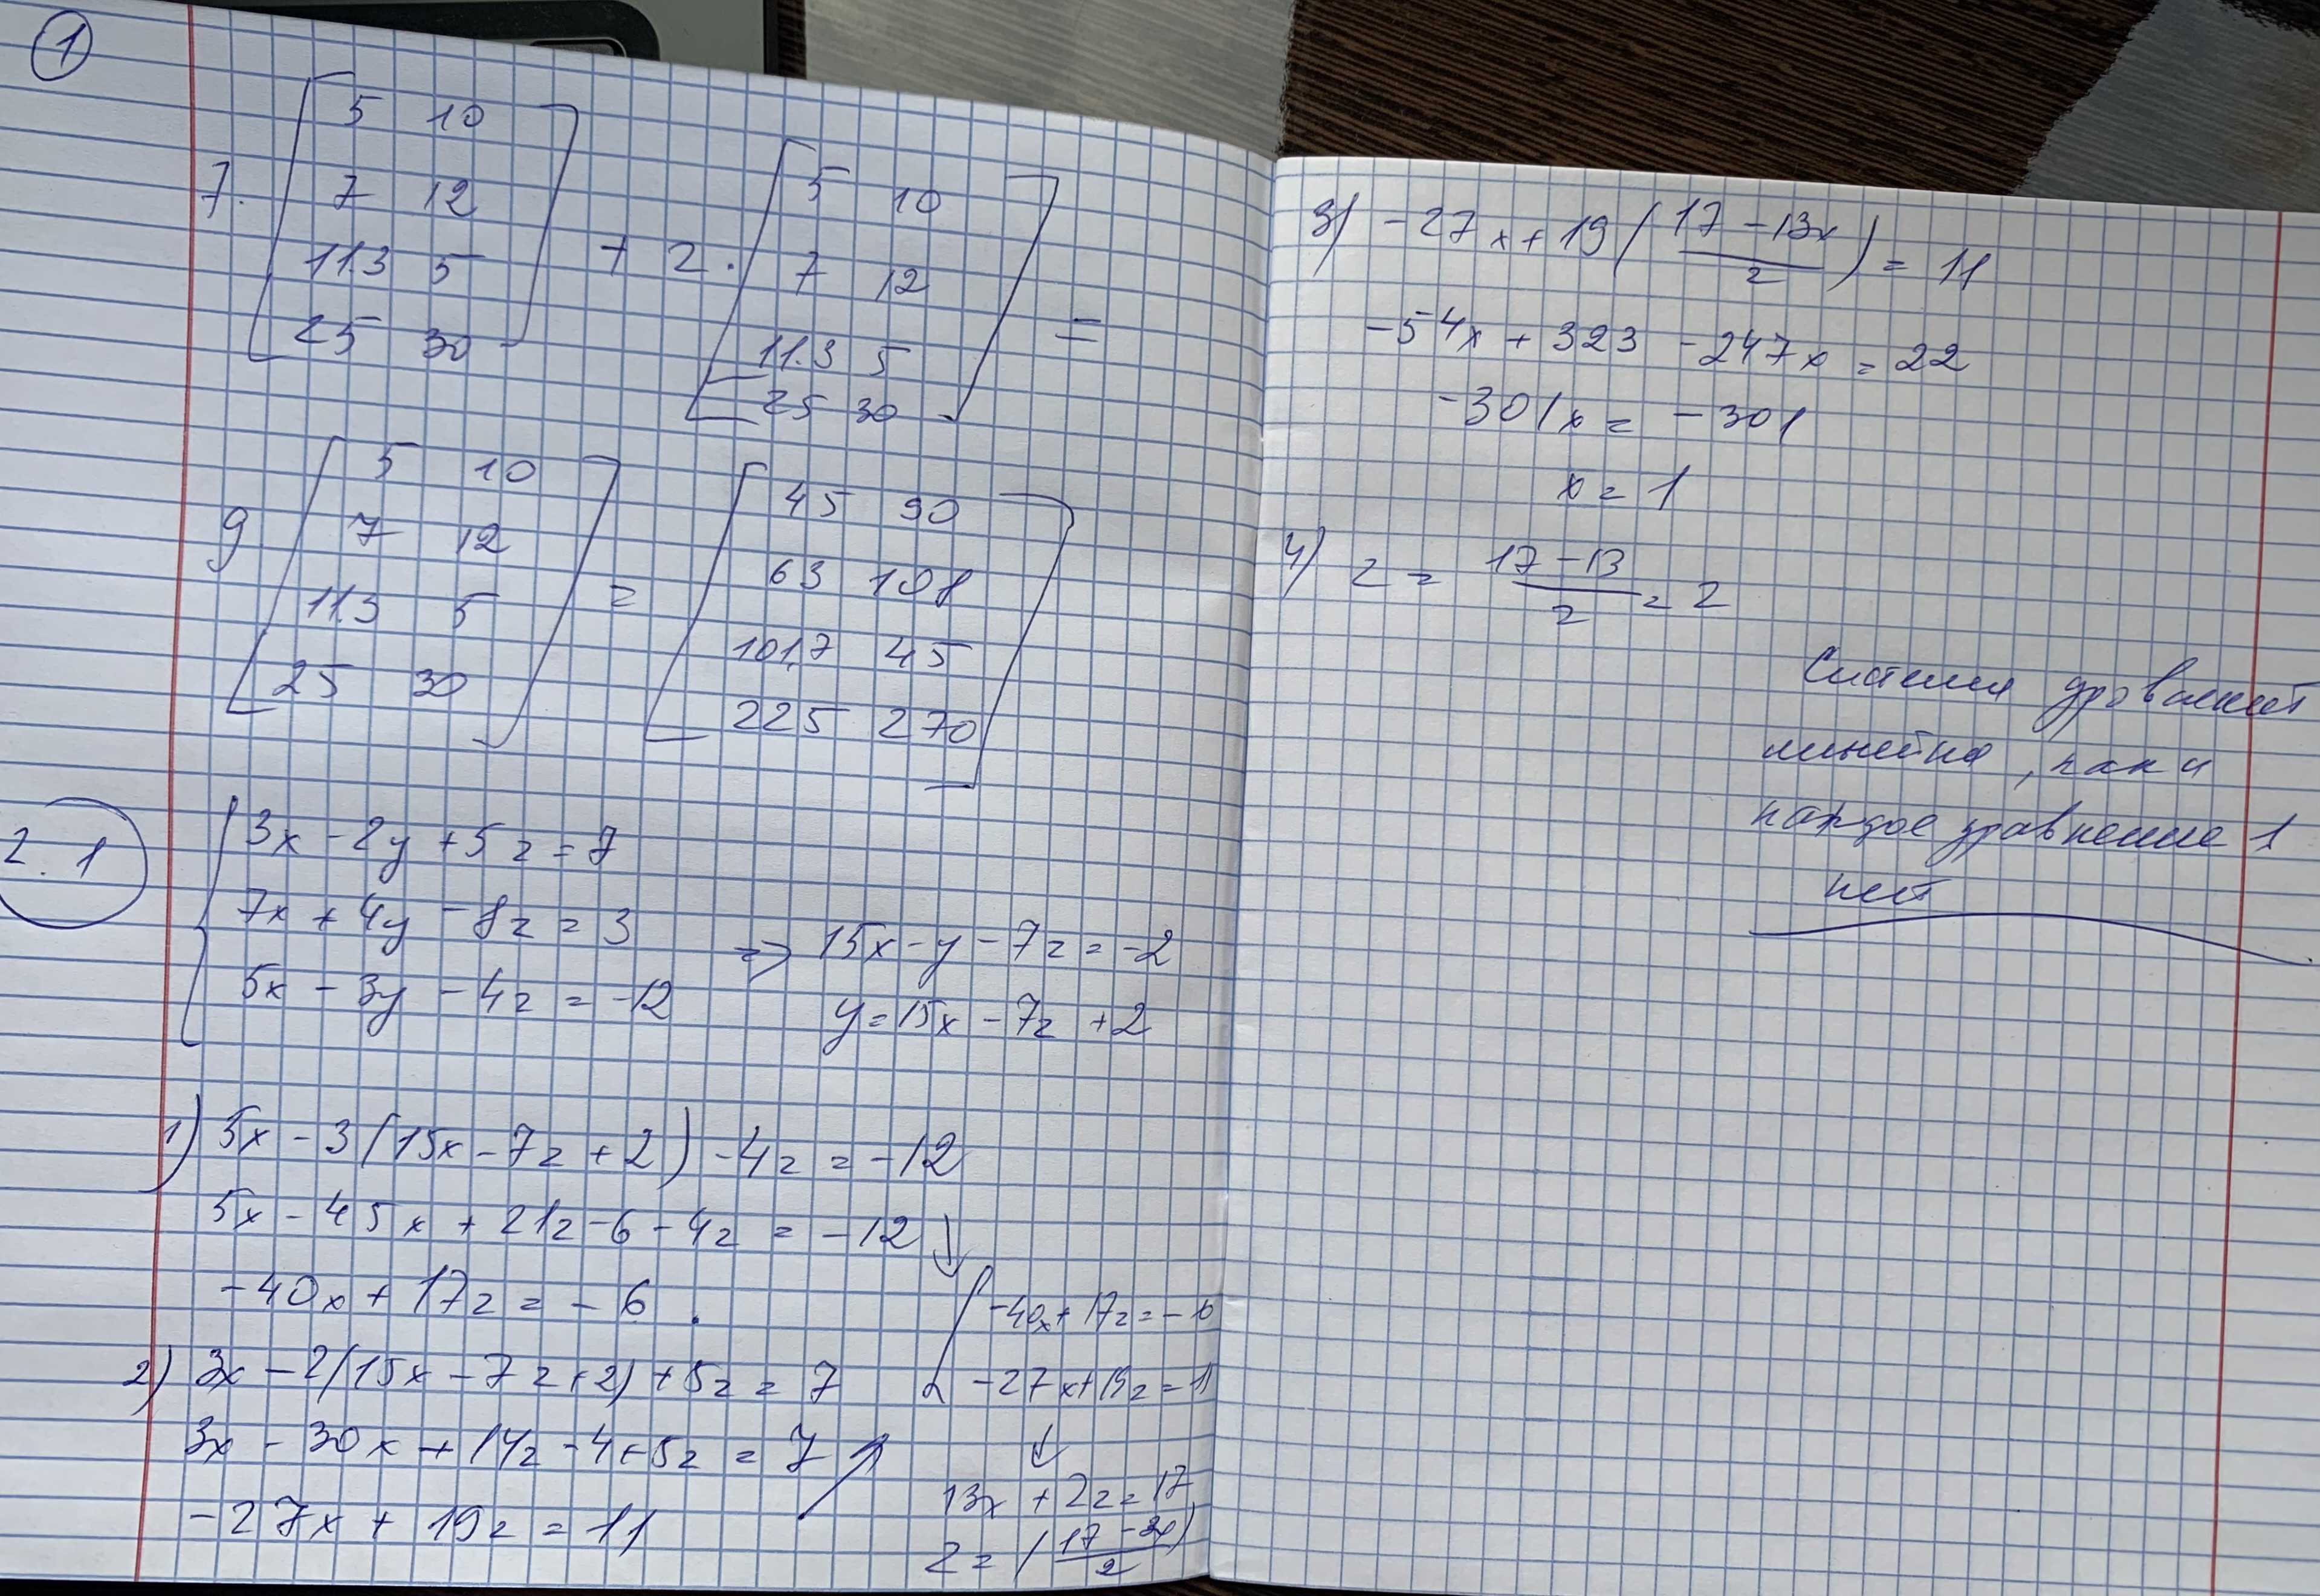 1
7. [ 5 10
7 12
11.3 5
25 30 ] + 2 · [ 5 10
7 12
11.3 5
25 30 ] =
9 [ 5 10
7 12
11.3 5
25 30 ] = [ 45 90
63 108
101,7 45
225 270 ]
2.1
{ 3x - 2y + 5z = 7
7x + 4y - 8z = 3
5x - 3y - 4z = -12
=> 15x - y - 7z = -2
y = 15x - 7z + 2
1) 5x - 3(15x - 7z + 2) - 4z = -12
5x - 45x + 21z - 6 - 4z = -12
-40x + 17z = -6
2) 3x - 2(15x - 7z + 2) + 5z = 7
3x - 30x + 14z - 4 + 5z = 7
-27x + 19z = 11
{ -40x + 17z = -6
-27x + 19z = 11
↓
13x + 2z = 17
z = (17 - 3x)/2
3) -27x + 19 ( (17 - 13x)/2 ) = 11
-54x + 323 - 247x = 22
-301x = -301
x = 1
4) z = (17 - 13)/2 = 2
Система уравнений
линейна, как и
каждое уравнение 1